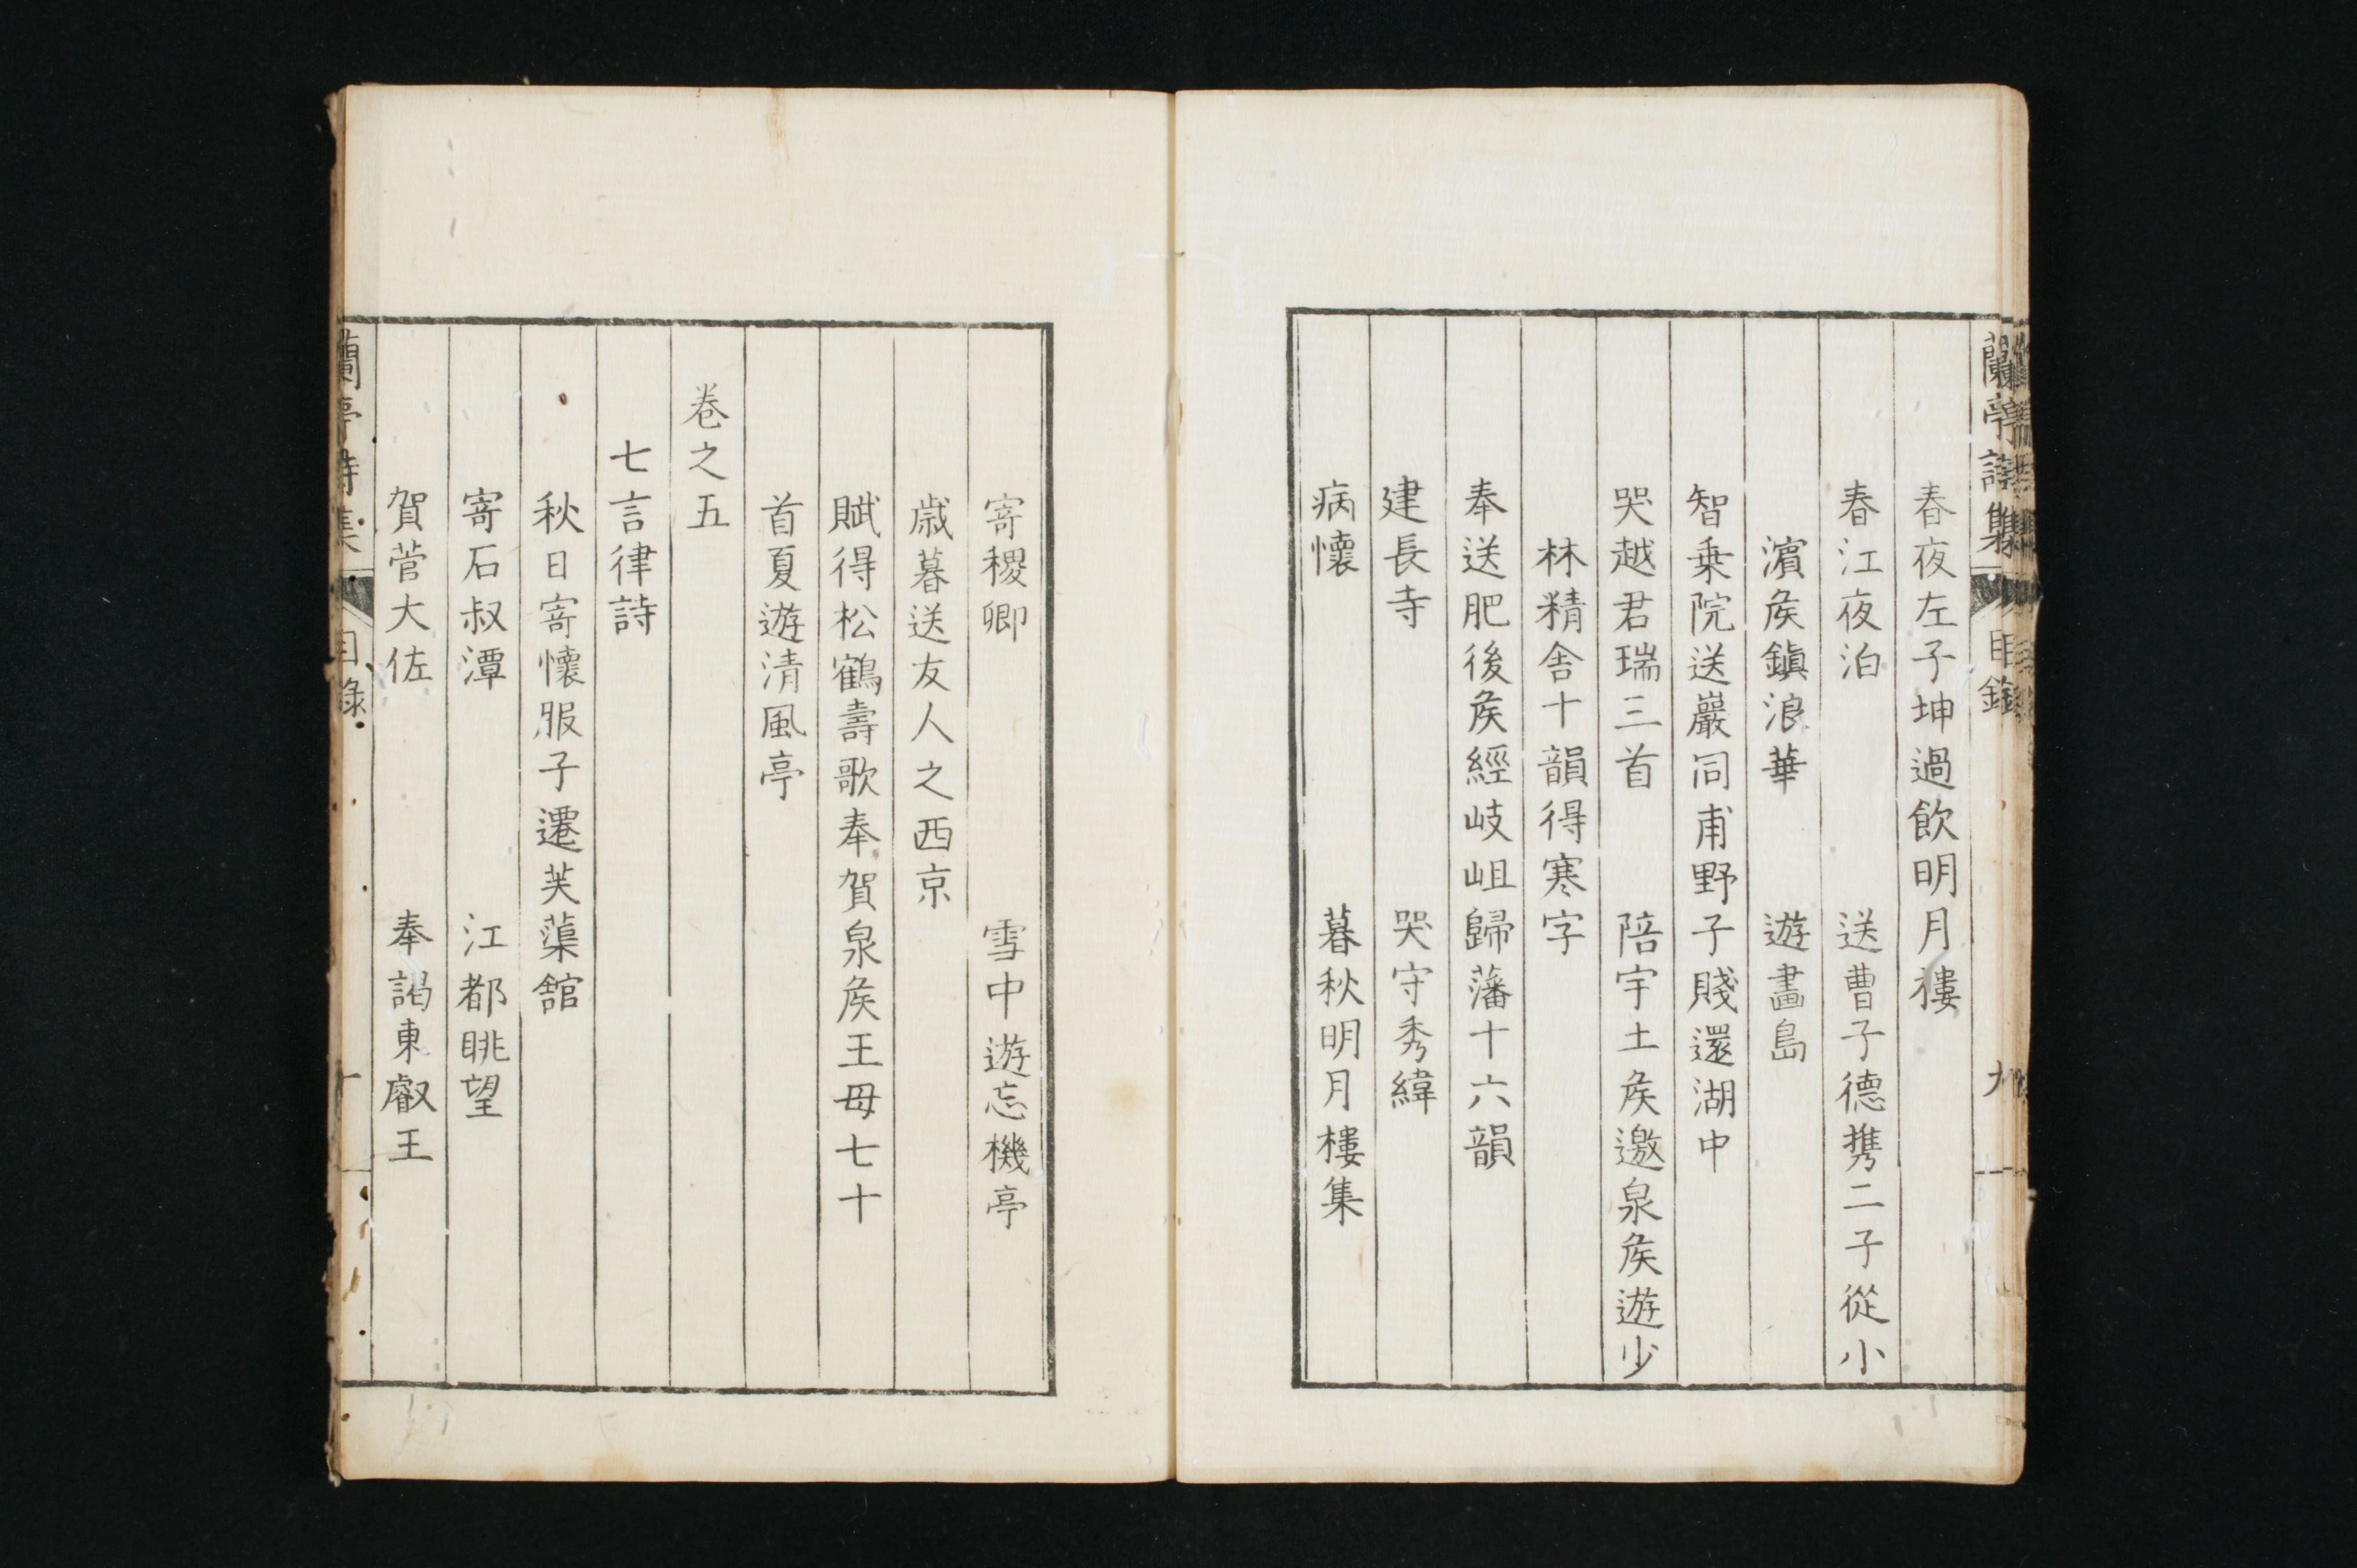 蘭亭詩集 目錄 九
春夜左子坤過飲明月樓
春江夜泊 送曹子德携二子從小
濵矦鎭浪華 遊畵島
智乗院送巖同甫野子賤還湖中
哭越君瑞三首 陪宇土矦邀泉矦遊少
林精舎十韻得寒字
奉送肥後矦經岐岨歸藩十六韻
建長寺 哭守秀緯
病懷 暮秋明月樓集
寄稷卿 雪中遊忘機亭
歲暮送友人之西京
賦得松鶴壽歌奉賀泉矦王母七十
首夏遊清風亭
卷之五
七言律詩
秋日寄懷服子遷芙蕖館
寄石叔潭 江都眺望
賀菅大佐 奉謁東叡王
蘭亭詩集 目錄 十